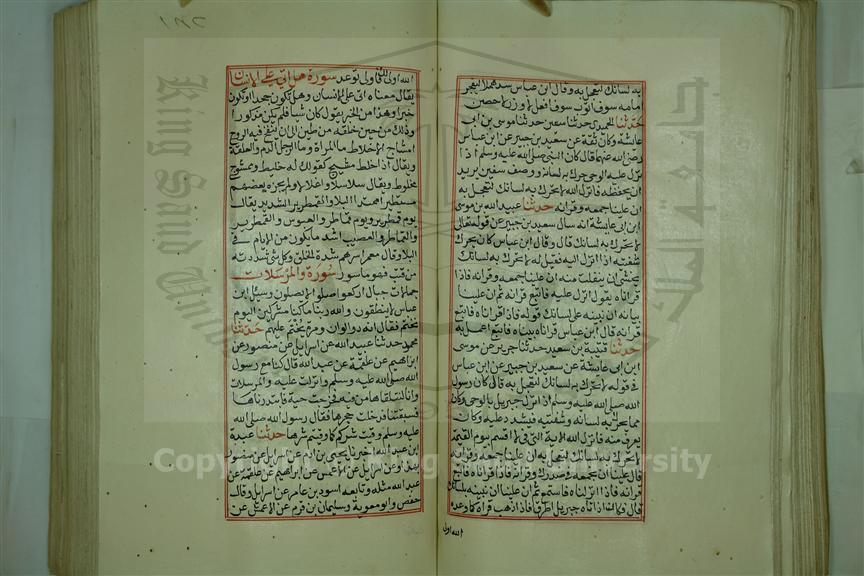 به لسانك لتعجل به وقال ابن عباس سدى هملا ليفجر
امامه سوف اتوب سوف اعمل لا وزر لا حصن
حدثنا الحميدي حدثنا سفين حدثنا موسى بن ابي
عايشة وكان ثقة عن سعيد بن جبير عن ابن عباس
رضي الله عنهما قال كان النبي صلى الله عليه وسلم اذا
نزل عليه الوحي حرك به لسانه ووصف سفين يريد
ان يحفظه فانزل الله لا تحرك به لسانك لتعجل به
ان علينا جمعه وقرانه حدثنا عبيد الله بن موسى
ابن ابي عايشة انه سال سعيد بن جبير عن قوله تعالى
لا تحرك به لسانك قال وقال ابن عباس كان يحرك
شفتيه اذا انزل اليه فقيل له لا تحرك به لسانك
يخشى ان ينفلت منه ان علينا جمعه وقرانه فاذا
قراناه يقول انزل عليه فاتبع قرانه ثم ان علينا
بيانه ان نبينه على لسانك قوله فاذا قراناه فاتبع
قرانه قال ابن عباس قراناه بيناه فاتبع اعمل به
حدثنا قتيبة بن سعيد حدثنا جرير عن موسى
ابن ابي عايشة عن سعيد بن جبير عن ابن عباس
في قوله لا تحرك به لسانك لتعجل به قال كان رسول
الله صلى الله عليه وسلم اذا نزل جبريل بالوحي وكان
مما يحرك به لسانه وشفتيه فيشتد عليه وكان
يعرف منه فانزل الله الاية التي في لا اقسم بيوم القيمة
لا تحرك به لسانك لتعجل به ان علينا جمعه وقرانه
قال علينا ان نجمعه في صدرك وقرانه فاذا قراناه فاتبع
قرانه فاذا انزلناه فاستمع ثم ان علينا ان نبينه بلسانك
قال فكان اذا اتاه جبريل اطرق فاذا ذهب قراه كما وعده
الله اولى
الله اولى لك فاولى توعد سورة هل اتى على الانسان
يقال معناه اتى على الانسان وهل تكون جحدا وتكون
خبرا وهذا من الخبر يقول كان شيا فلم يكن مذكورا
وذلك من حين خلقه من طين الى ان ينفخ فيه الروح
امشاج الاخلاط ما المراة وما الرجل الدم والعلقة
ويقال اذا خلط مشيج كقولك له خليط وممشوج
مخلوط ويقال سلاسلا واغلالا ولم يجزه بعضهم
مستطيرا ممتد البلا والقمطرير الشديد يقال
يوم قمطرير ويوم قماطر والعبوس والقمطرير
والقماطر والعصيب اشد ما يكون من الايام في
البلا وقال معمر اسرهم شدة الخلق وكل شي شددته
من قتب فهو ماسور سورة والمرسلات
جمالات حبال اركعوا صلوا لا يصلون وسئل ابن
عباس لا ينطقون والله ربنا ما كنا مشركين اليوم
نختم فقال انه ذو الوان ومرة يختم عليهم حدثنا
محمد حدثنا عبيد الله عن اسرايل عن منصور عن
ابراهيم عن علقمة عن عبد الله قال كنا مع رسول
الله صلى الله عليه وسلم وانزلت عليه والمرسلات
وانا لنتلقاها من فيه فخرجت حية فابتدرناها
فسبقتنا فدخلت جحرها فقال رسول الله صلى الله
عليه وسلم وقيت شركم كما وقيتم شرها حدثنا عبدة
ابن عبد الله اخبرنا يحيى بن ادم عن اسرايل عن منصور
بهذا وعن اسرايل عن الاعمش عن ابراهيم عن علقمة عن
عبد الله مثله وتابعه اسود بن عامر عن اسرايل وقال
حفص وابو معوية وسليمان بن قرم عن الاعمش عن
Copyright © King Saud University
King Saud University
جامعة الملك